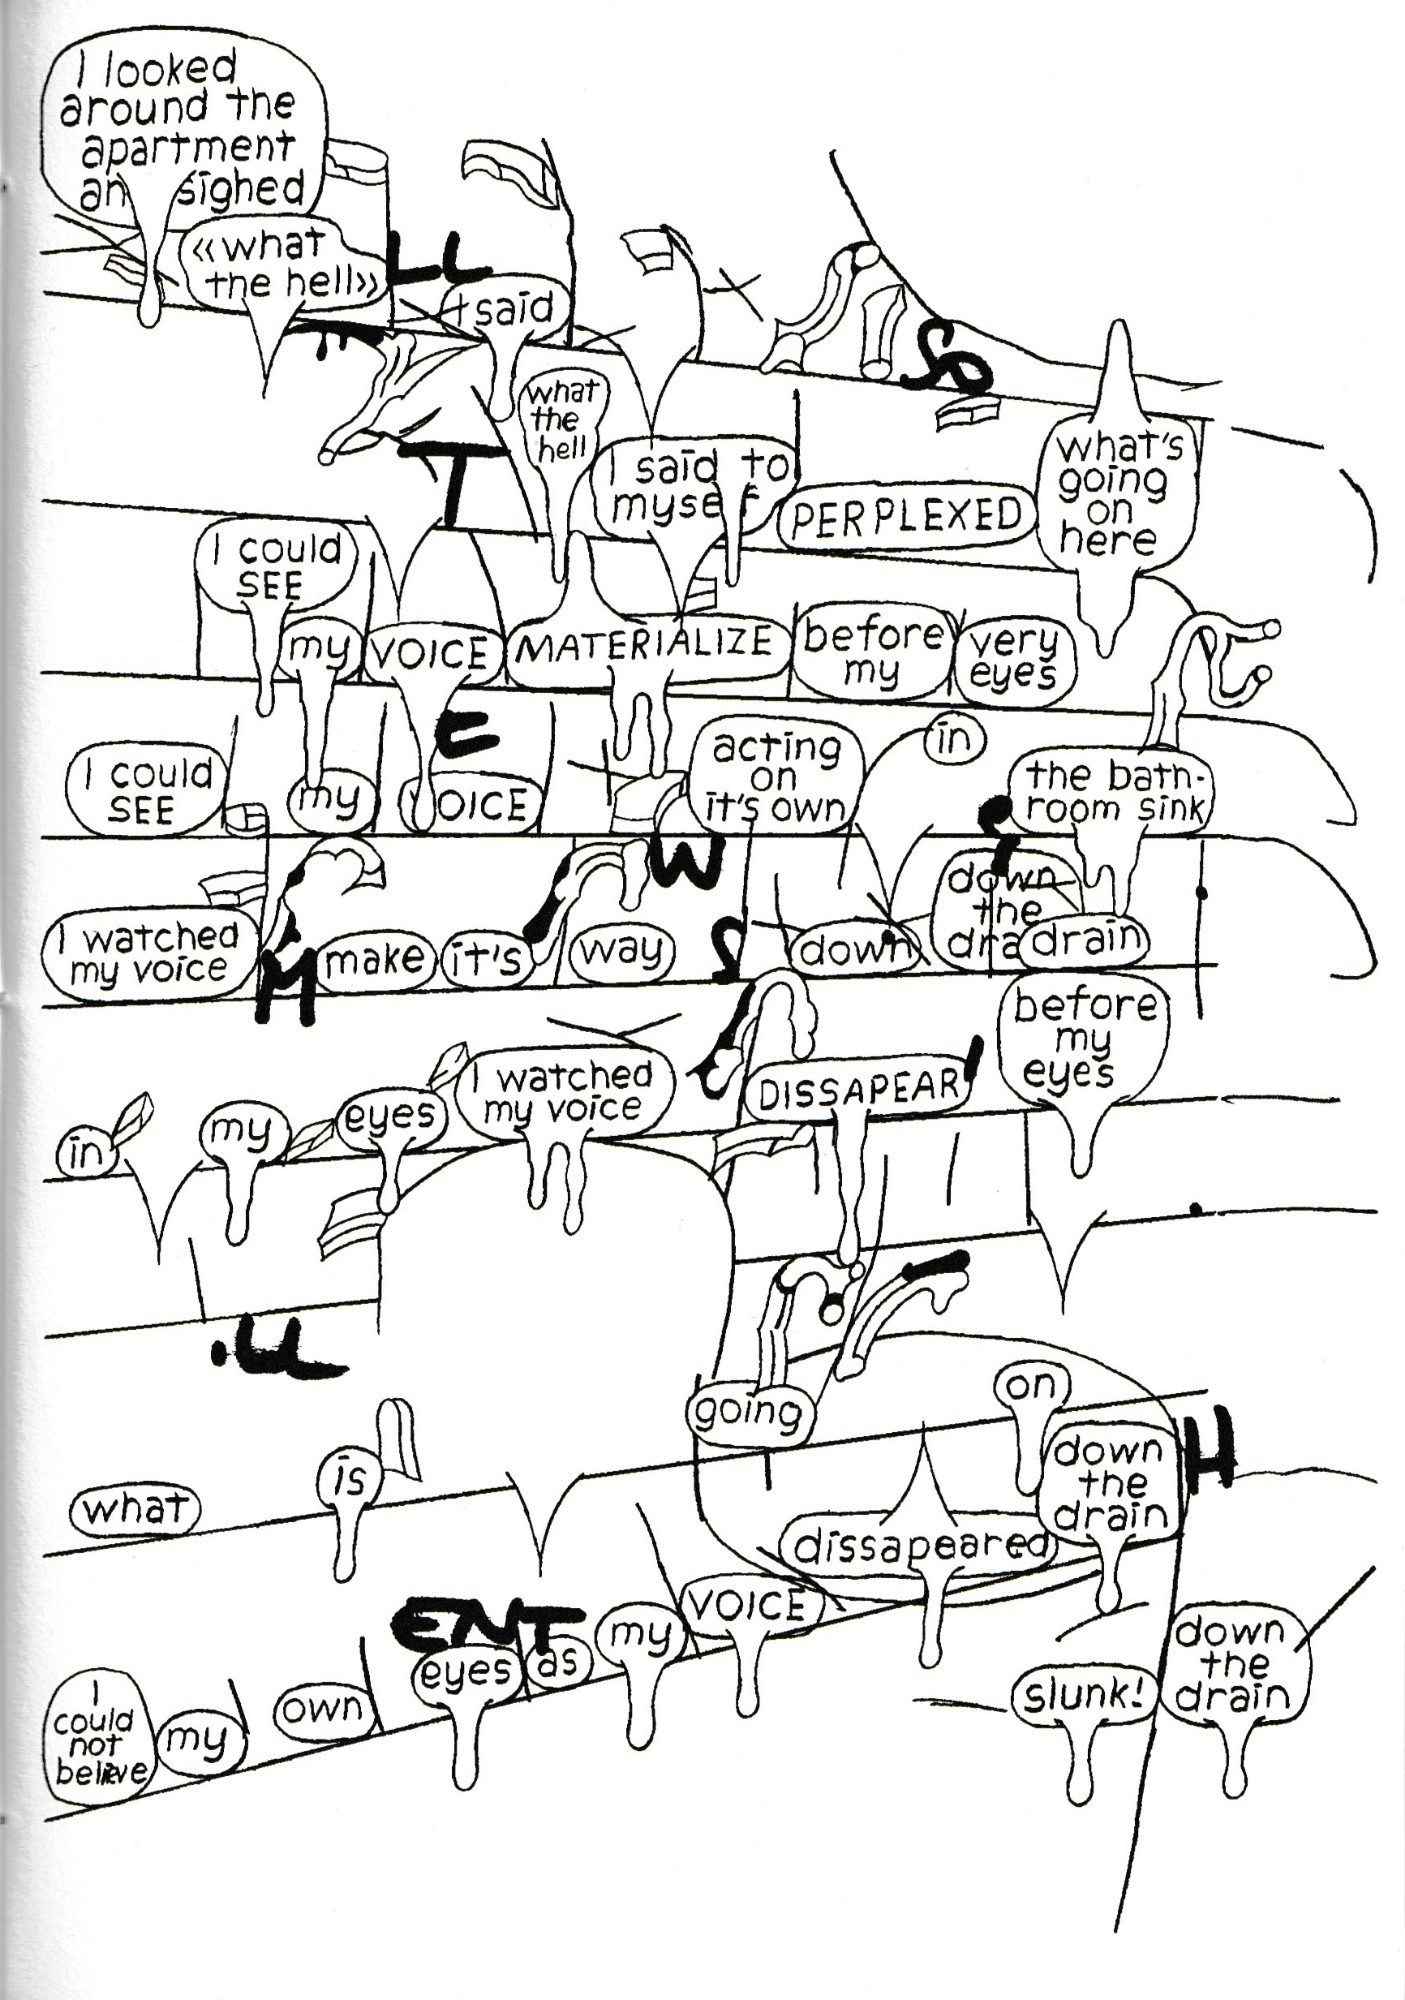 I looked
around the
apartment
an sighed
«what
the hell»
LL
I said
SO
what
the
hell
T
I said to
myself
PERPLEXED
what's
going
on
here
I could
SEE
my
VOICE
MATERIALIZE
before
my
very
eyes
E
I could
SEE
my
VOICE
acting
on
it's own
in
the bath-
room sink
W
I watched
my voice
M
make
it's
way
S
down
down
the
dra
drain
in
my
eyes
I watched
my voice
DISSAPEAR
before
my
eyes
.LL
what
is
going
on
down
the
drain
H
dissapeared
ENT
I
could
not
believe
my
own
eyes
as
my
VOICE
slunk!
down
the
drain